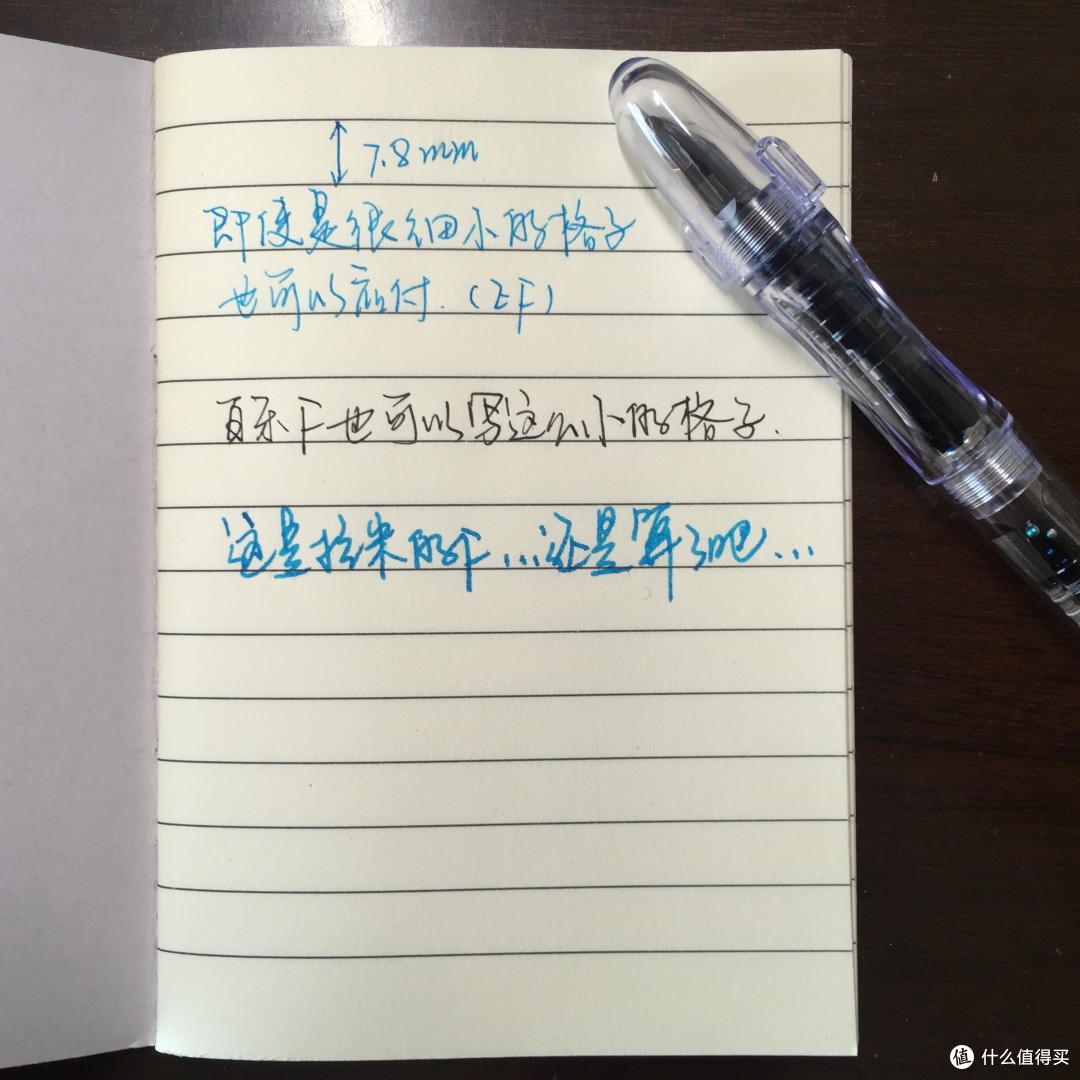 7.8mm
即使是很细小的格子
也可以应付.(EF)
百乐F也可以写这么小的格子.
这是拉米的F...还是算了吧...
值 什么值得买